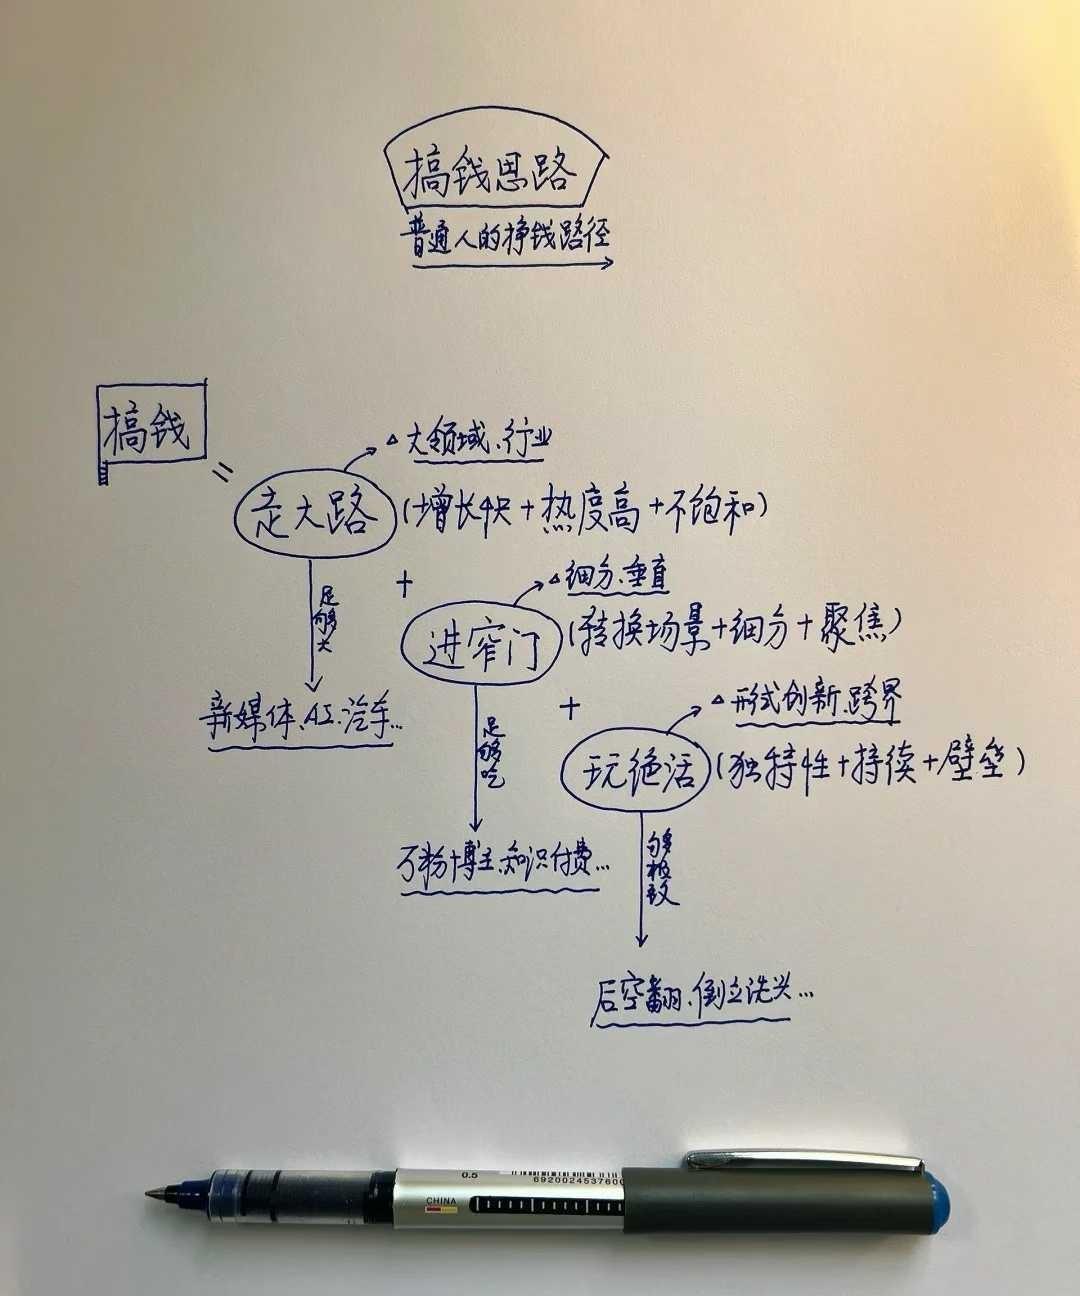 搞钱思路
普通人的挣钱路径
搞钱
=
△大领域、行业
走大路(增长快+热度高+不饱和)
足够大
新媒体、AI、汽车...
+
△细分、垂直
进窄门(转换场景+细分+聚焦)
足够吃
万粉博主、知识付费...
+
△形式创新、跨界
玩绝活(独特性+持续+壁垒)
够极致
后空翻、倒立洗头...
0.5
CHINA
6920024537600